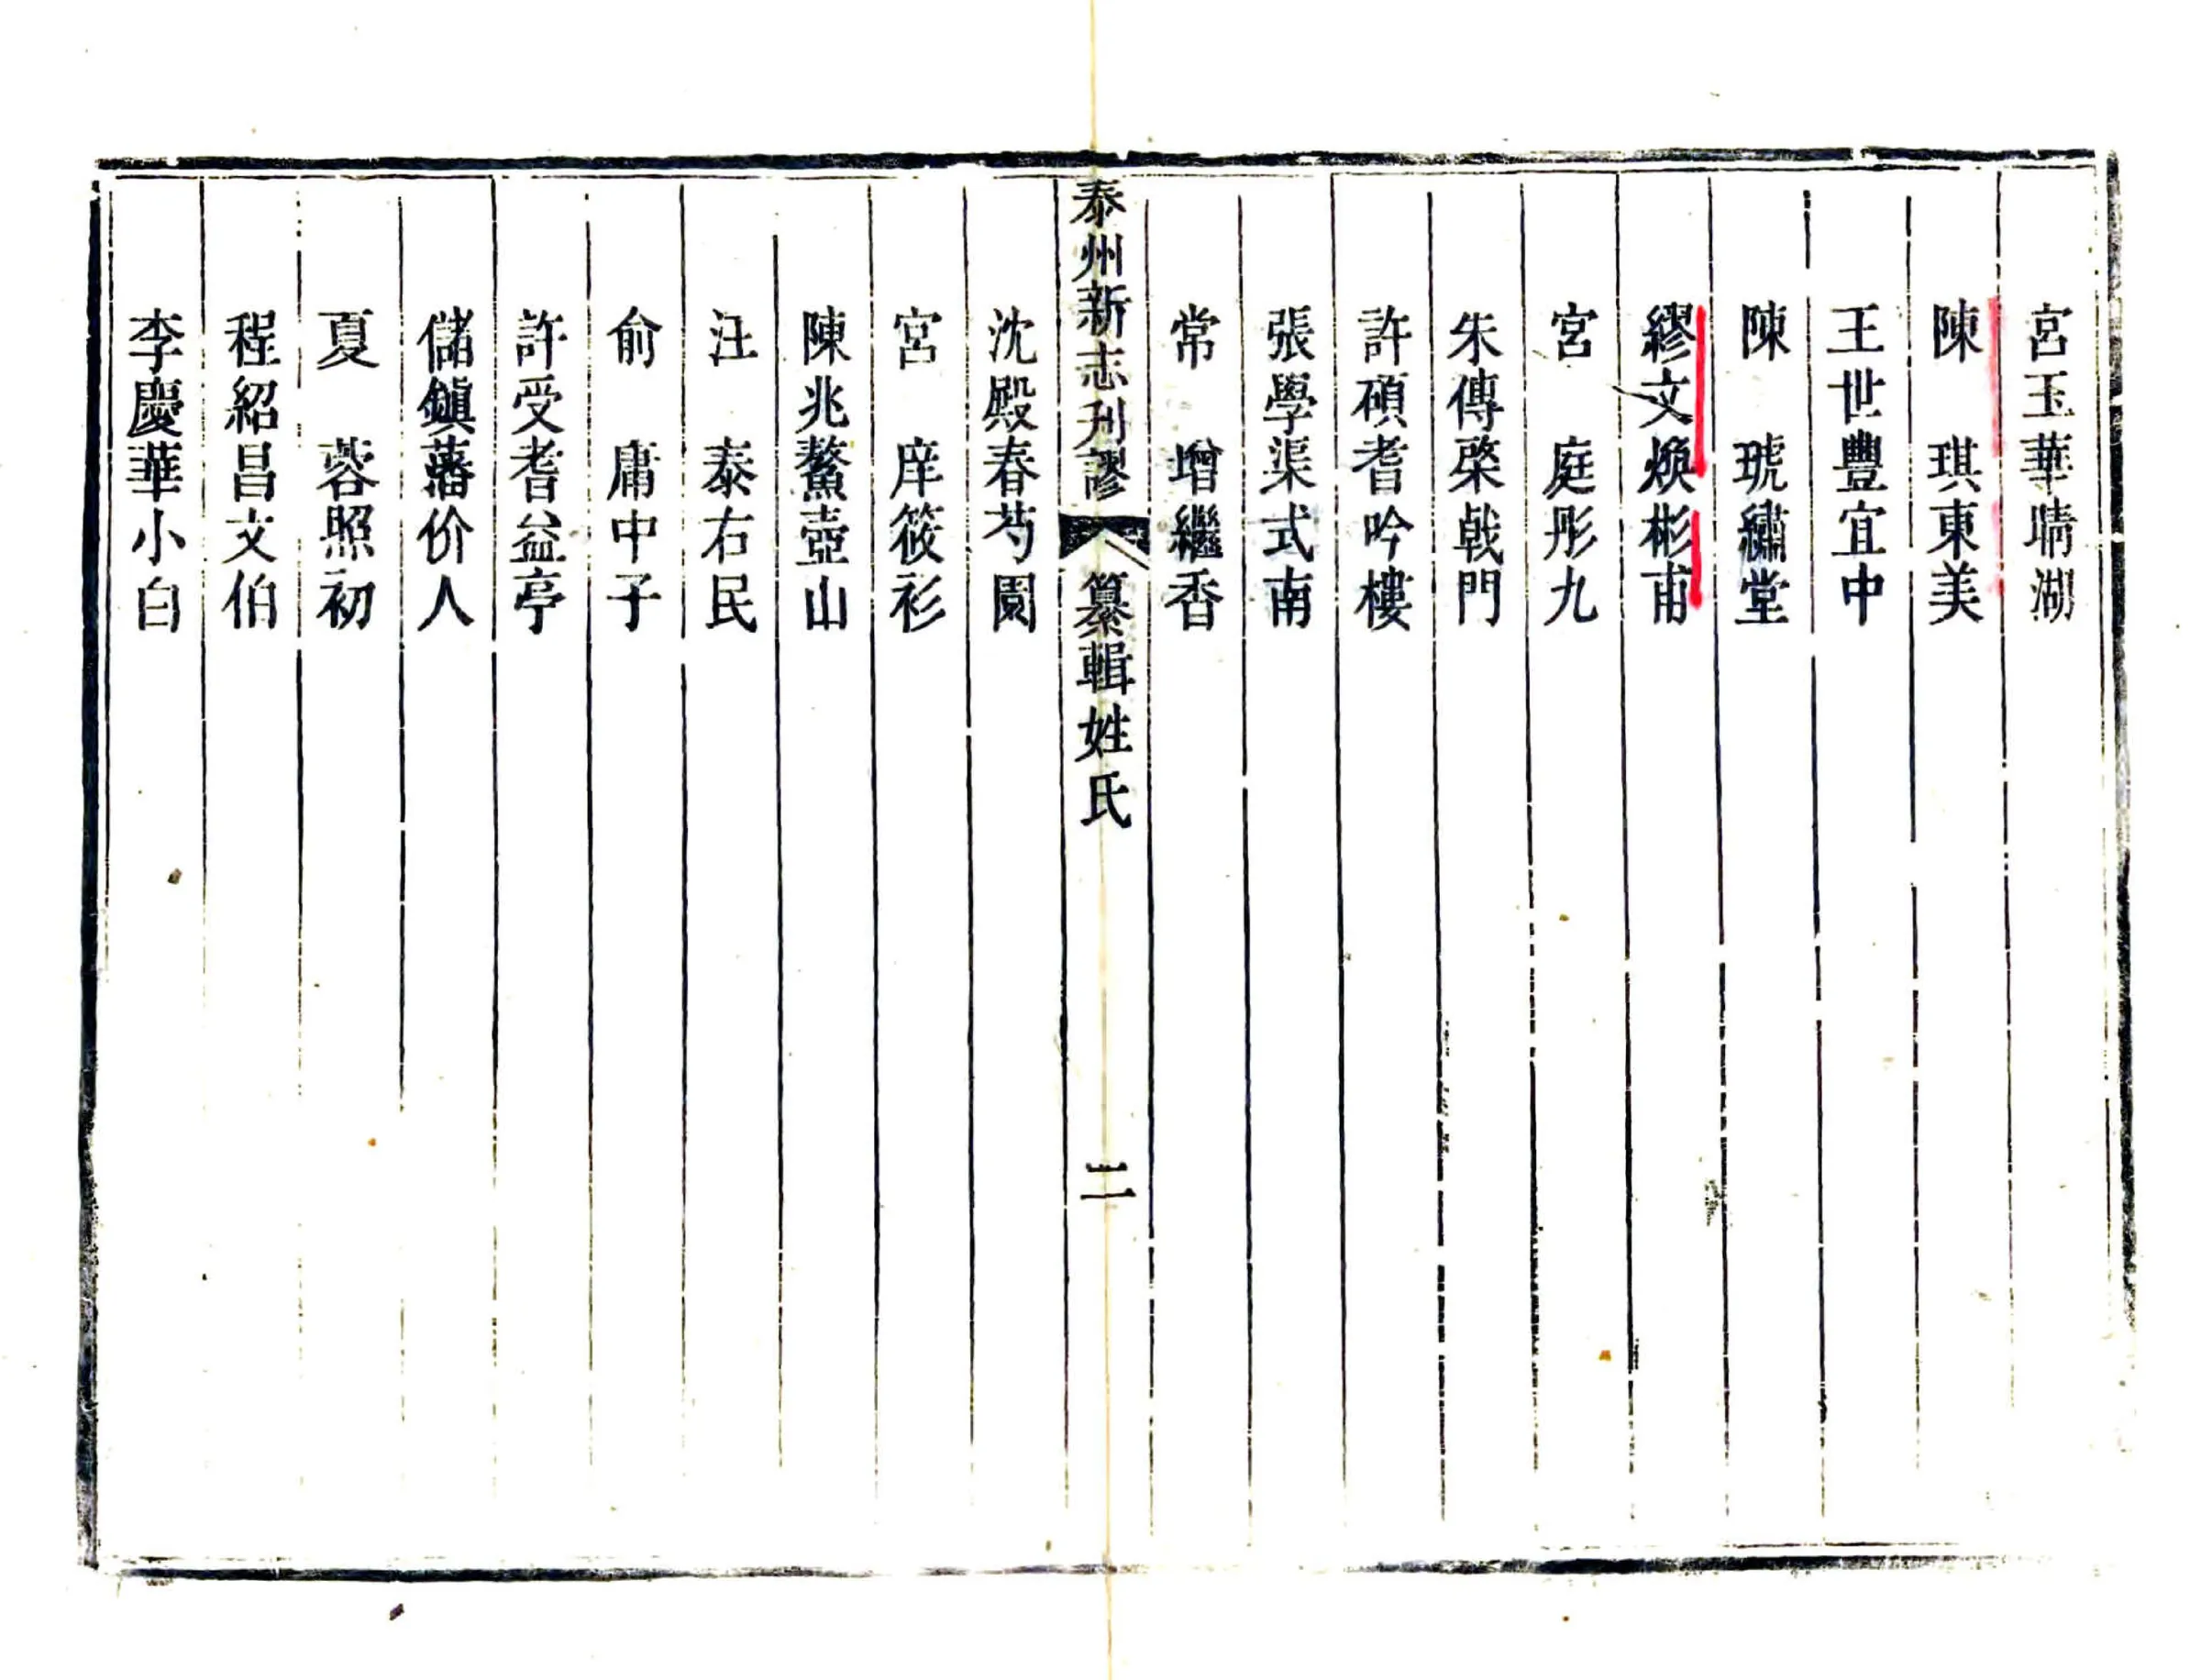 宮玉華晴湖
陳　琪東美
王世豐宜中
陳　琥繡堂
繆文煥彬甫
宮　庭彤九
朱傳棨戟門
許碩耆吟樓
張學渠式南
常　增繼香
泰州新志刊謬　纂輯姓氏　二
沈殿春芍園
宮　庠筱衫
陳兆鰲壺山
汪　泰右民
俞　庸中子
許受耆益亭
儲鎮藩价人
夏　蓉照初
程紹昌文伯
李慶華小白